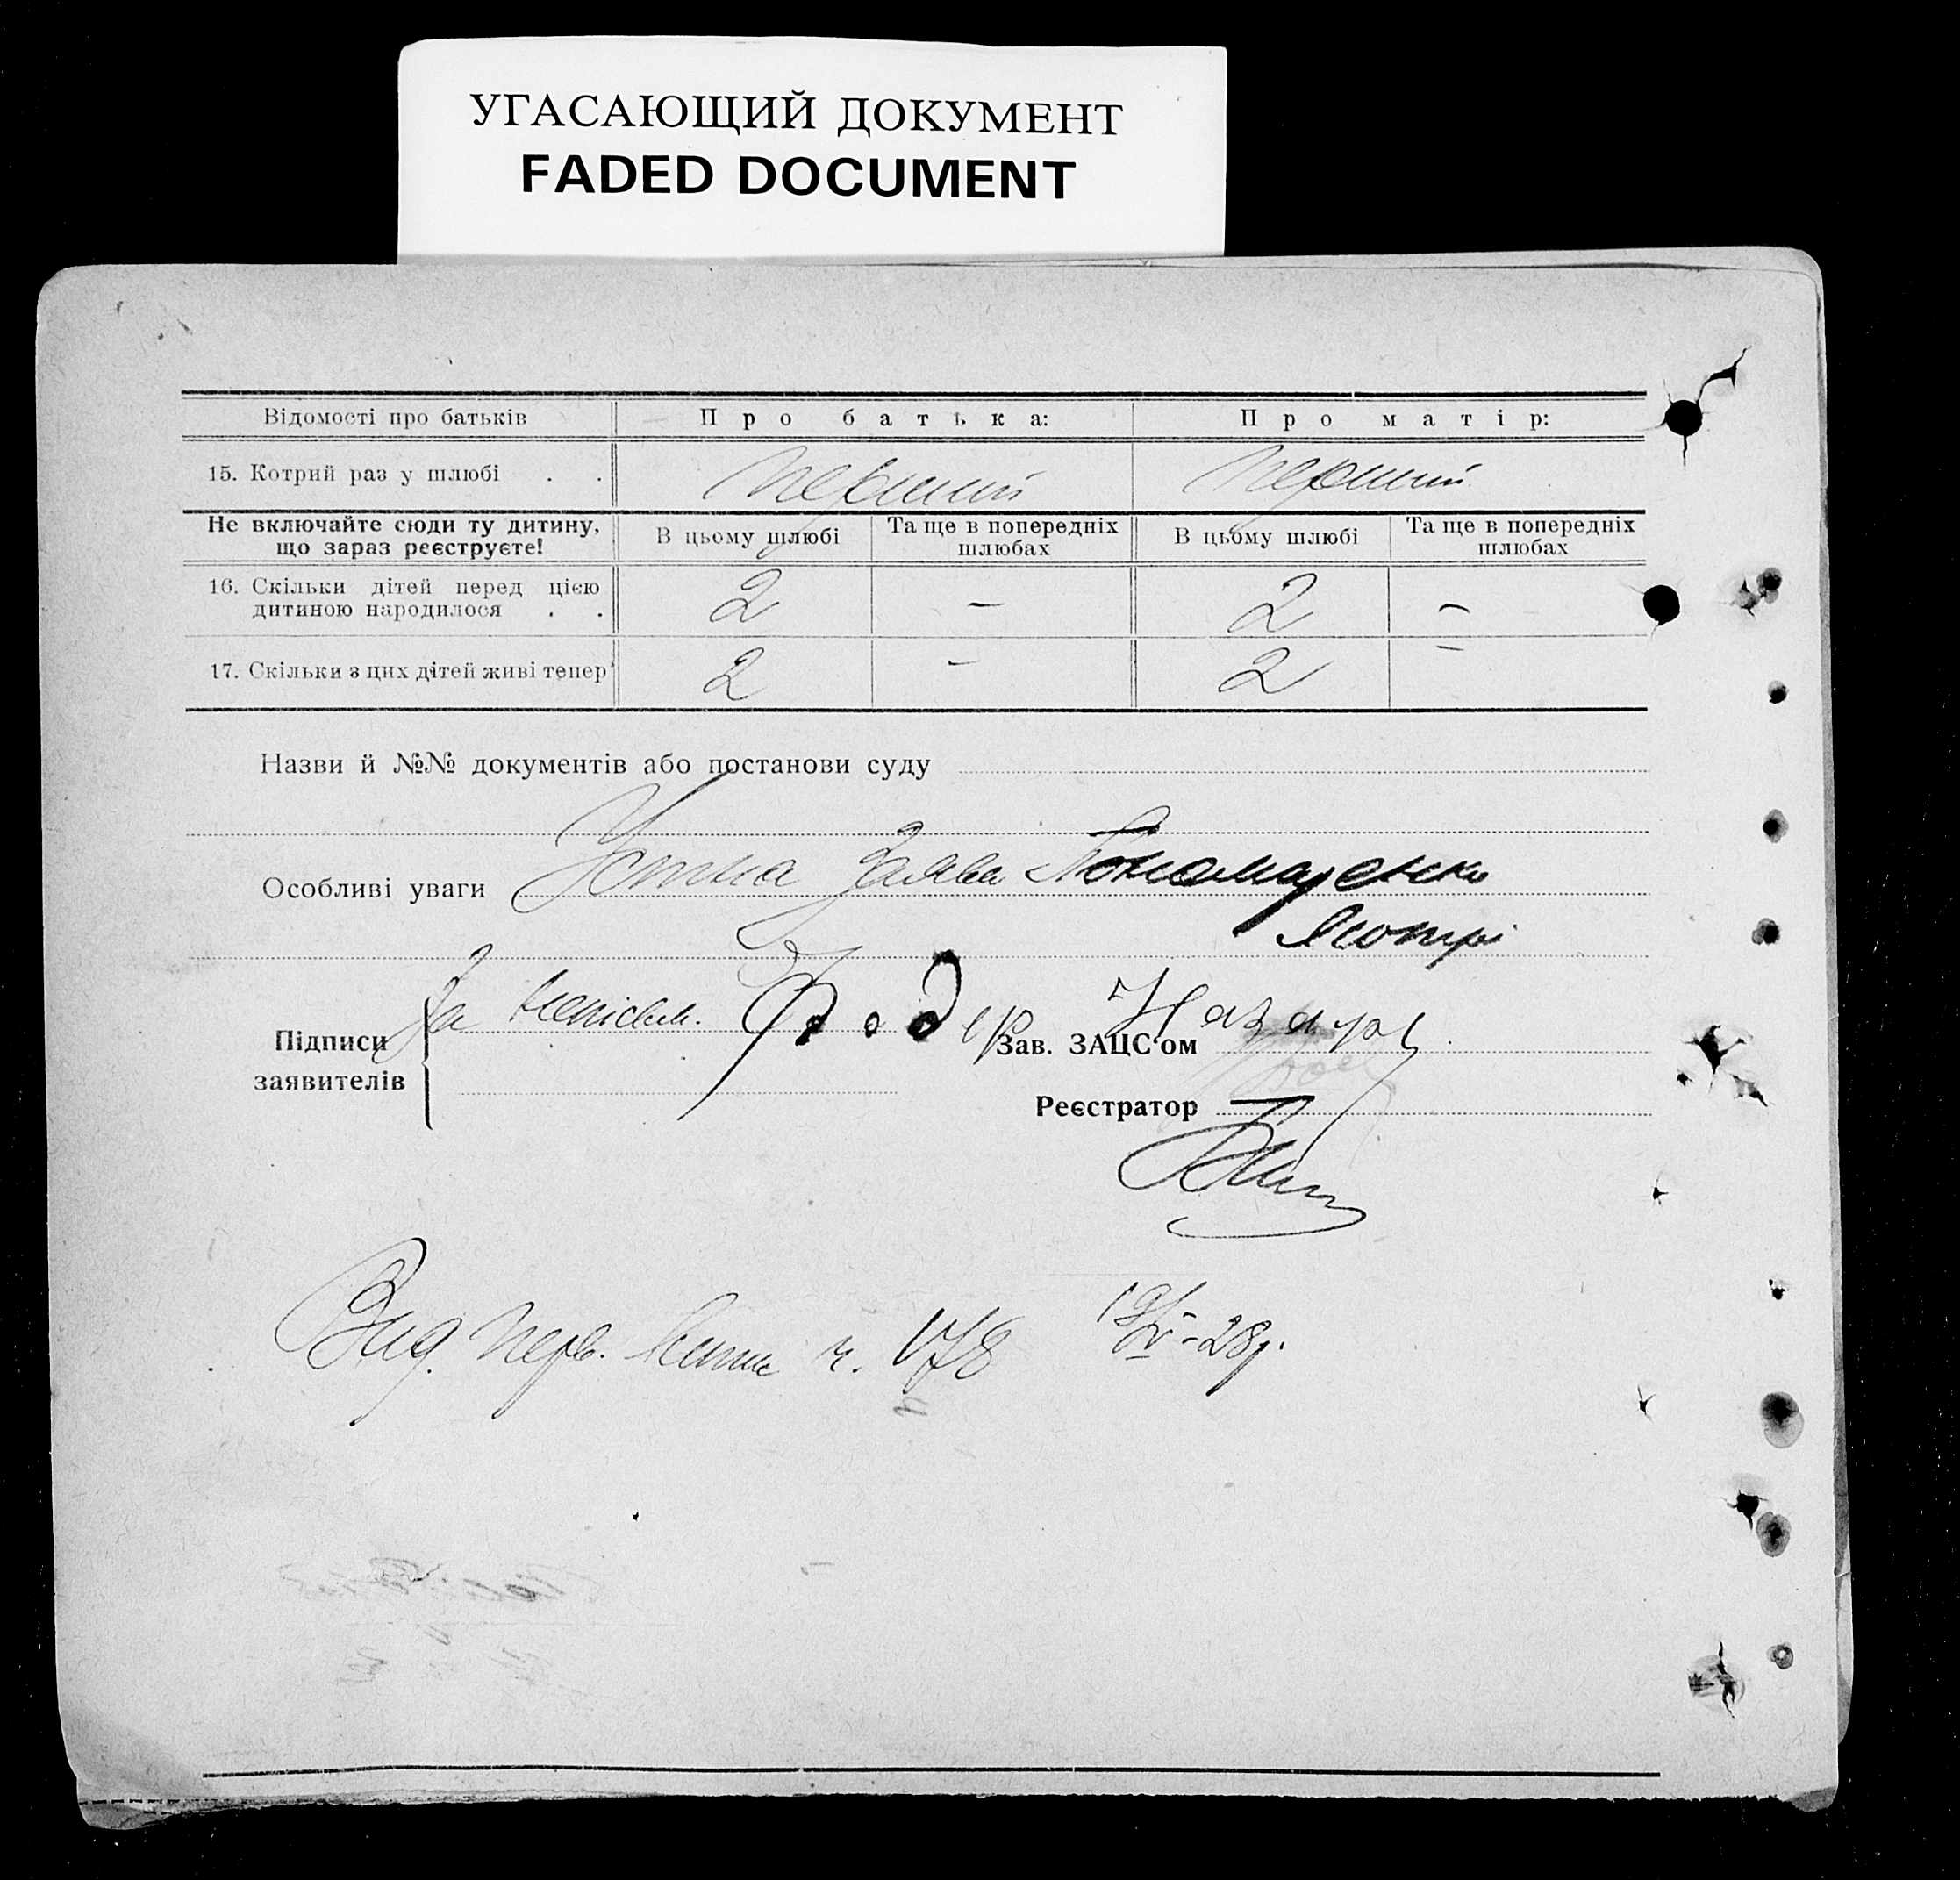 УГАСАЮЩИЙ ДОКУМЕНТ
FADED DOCUMENT
Відомості про батьків Про батька: Про матір:
15. Котрий раз у шлюбі . . перший перший
Не включайте сюди ту дитину, що зараз реєструєте! В цьому шлюбі Та ще в попередніх шлюбах В цьому шлюбі Та ще в попередніх шлюбах
16. Скільки дітей перед цією
дитиною народилося . . 2 – 2 –
17. Скільки з цих дітей живі тепер 2 – 2 –
Назви й №№ документів або постанови суду
Особливі уваги Устна заява Пономаренко
За неписьм.
Підписи
заявителів
Зав. ЗАЦС'ом
Реєстратор
Вид. перв. ч. 178 19/IV-28р.